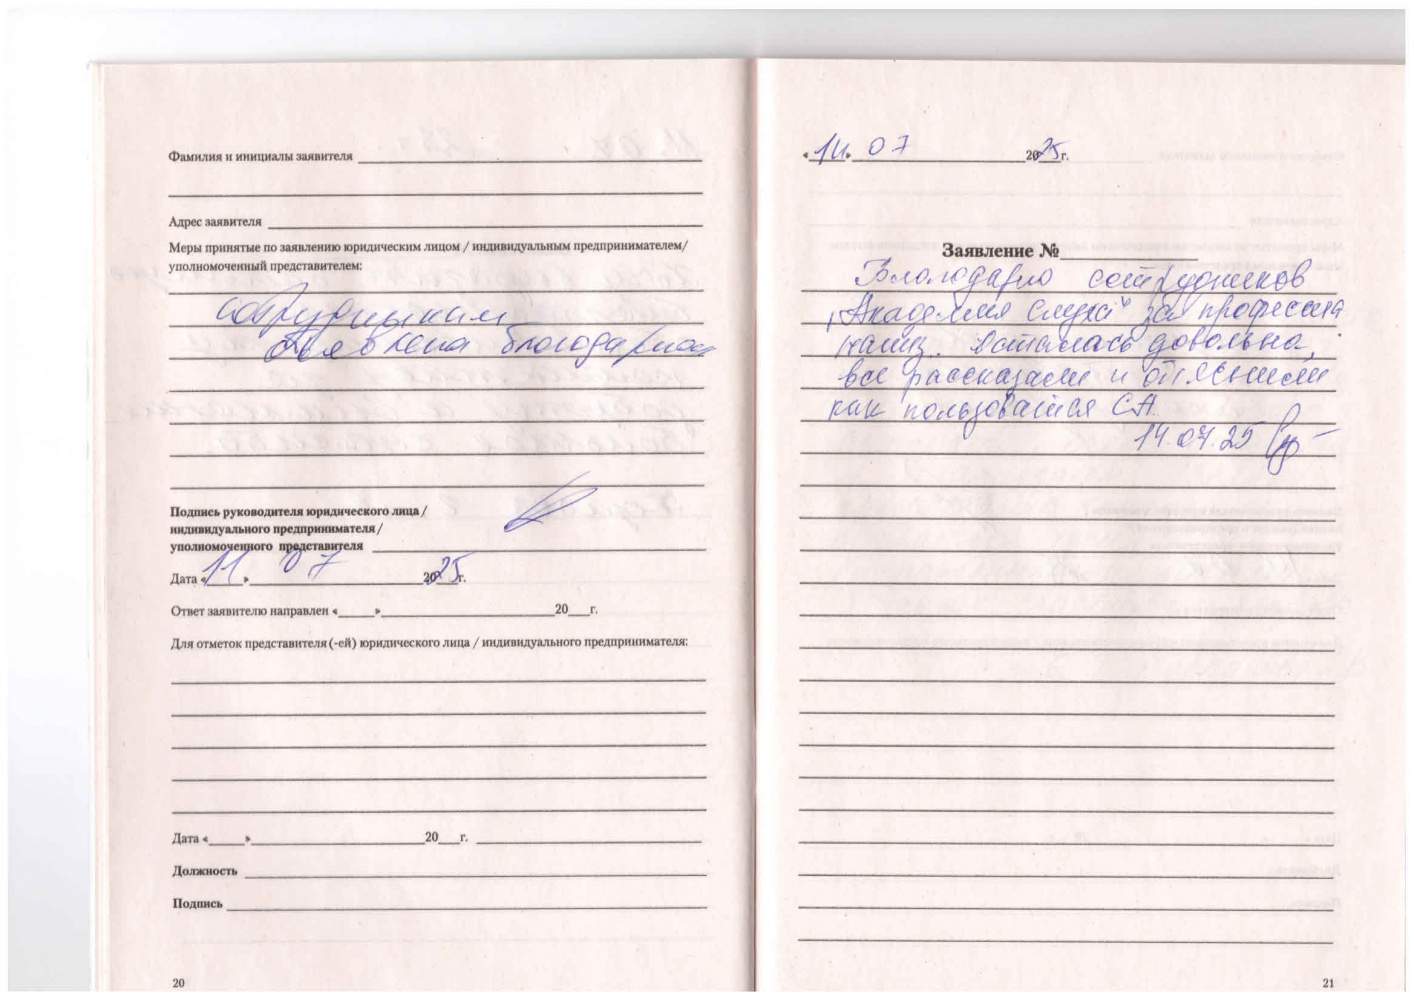 Фамилия и инициалы заявителя
Адрес заявителя
Меры принятые по заявлению юридическим лицом / индивидуальным предпринимателем/
уполномоченный представителем:
сотрудникам
объявлена благодарность
Подпись руководителя юридического лица /
индивидуального предпринимателя /
уполномоченного представителя
Дата «11» 07 2025г.
Ответ заявителю направлен «» 20 г.
Для отметок представителя (-ей) юридического лица / индивидуального предпринимателя:
Дата «» 20 г.
Должность
Подпись
20
«14» 07 2025г.
Заявление №
Благодарю сотрудников
"Академия слуха" за профессиона
лизм. Осталась довольна,
все рассказали и объяснили
как пользоваться СА.
14.07.25
21